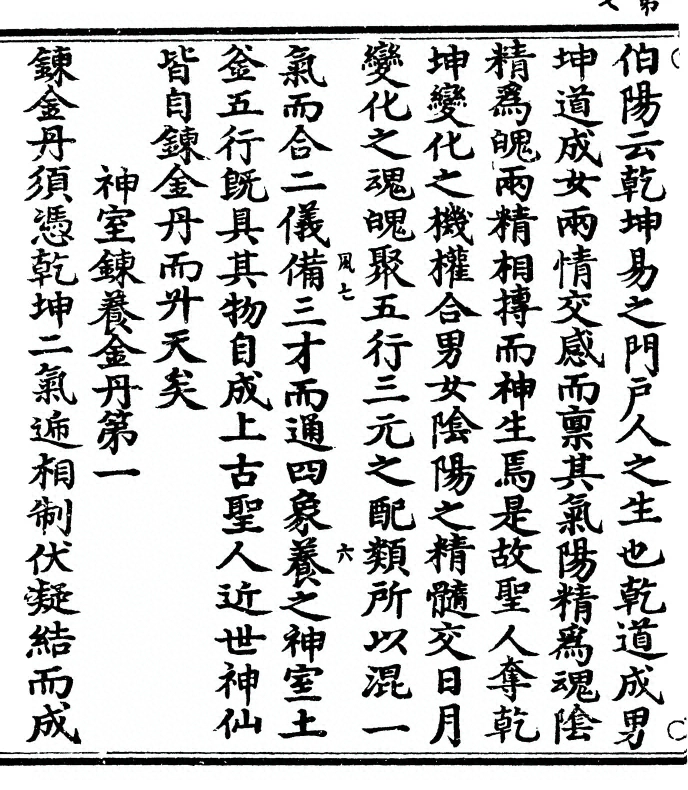 伯陽云乾坤易之門戶人之生也乾道成男
坤道成女兩情交感而禀其氣陽精爲魂陰
精爲魄兩精相摶而神生焉是故聖人奪乾
坤變化之機權合男女陰陽之精髓交日月
變化之魂魄聚五行三元之配類所以混一
風七 六
氣而合二儀備三才而通四象養之神室土
釜五行既具其物自成上古聖人近世神仙
皆自鍊金丹而升天矣
神室鍊養金丹第一
鍊金丹須憑乾坤二氣遞相制伏凝結而成